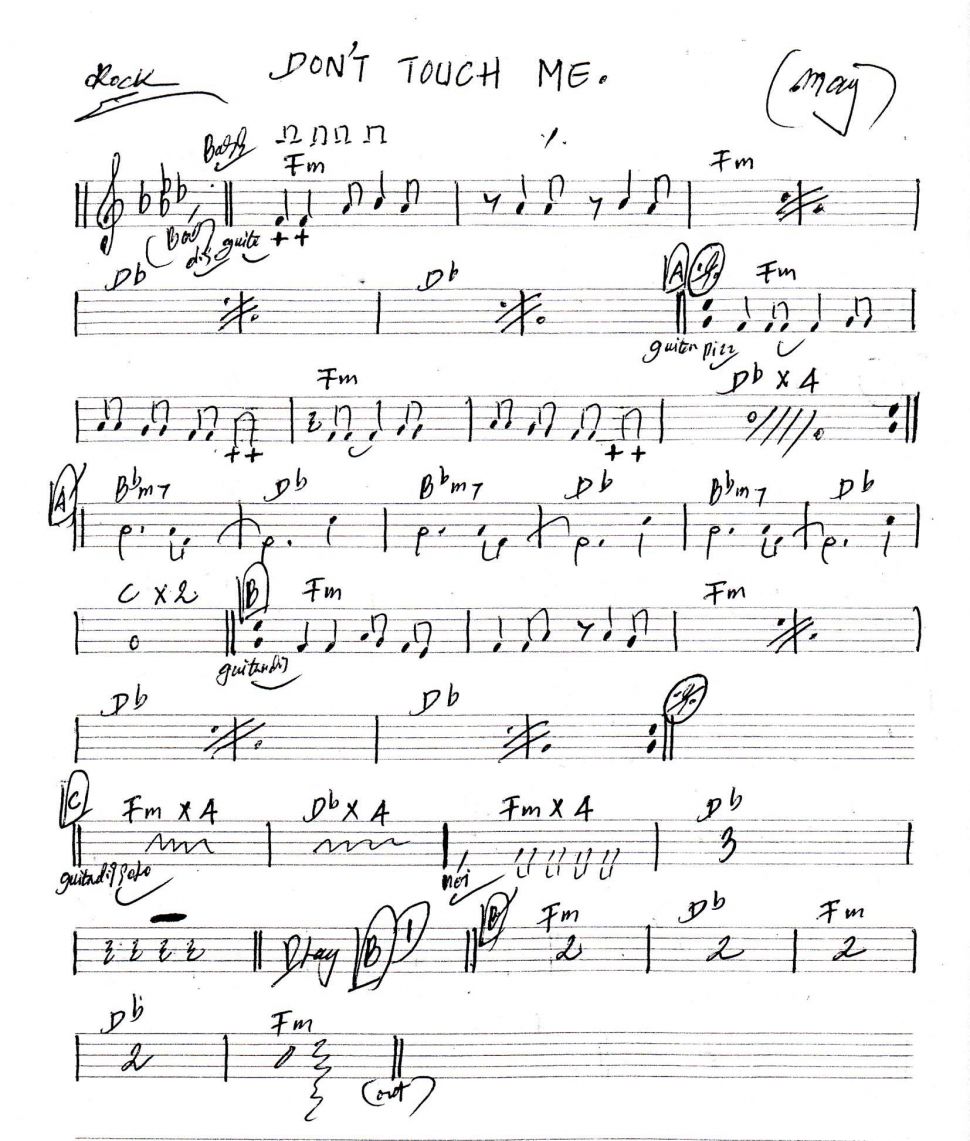 Rock DON'T TOUCH ME. (may)
Bass
Fm Fm
guita + +
Db Db A Fm
guitar pizz
Fm Db x 4
+ + + +
A Bbm7 Db Bbm7 Db Bbm7 Db
C x2 B Fm Fm
Db Db
C Fm x 4 Db x 4 Fm x 4 Db
3
nói
Play B 1 B Fm Db Fm
2 2 2
Db Fm
2
(out)